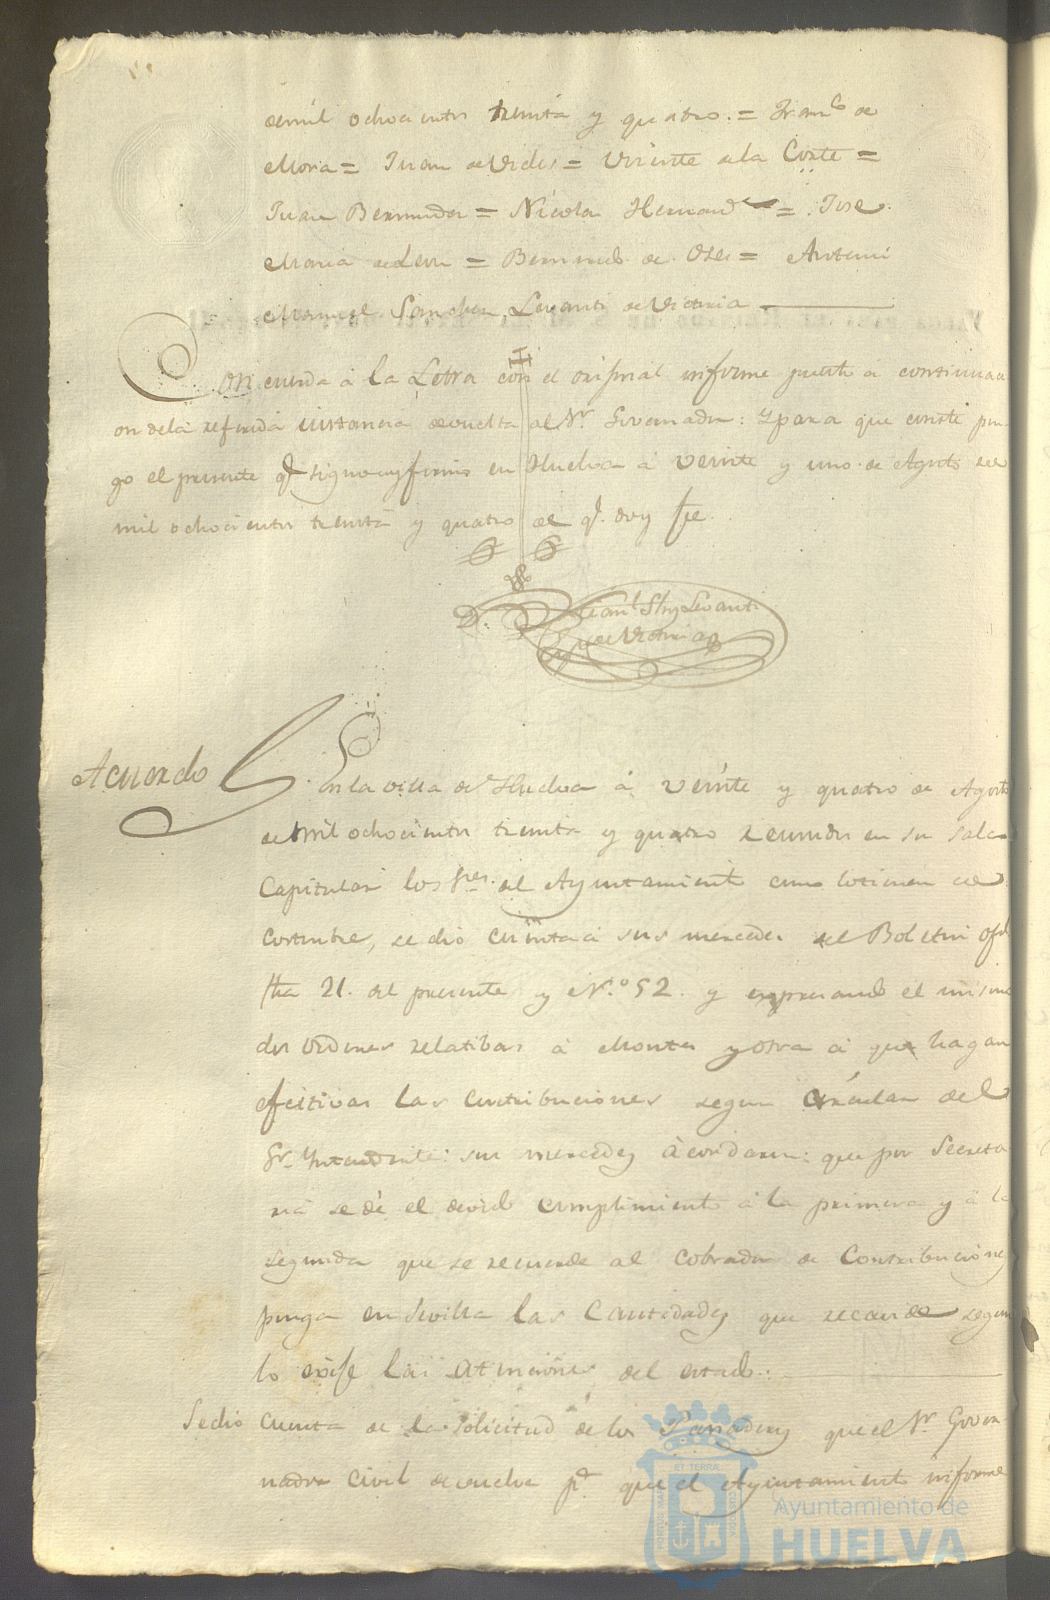 de mil ochocientos treinta y quatro. = Fran.co de
Mora = Juan de Vides = Vicente de la Corte =
Juan Bermudez = Nicolas Hernand = Jose
Maria de Leon = Bernardo de = Antoni
Manuel Sanchez, Levanti de Victoria
Concuerda á la Letra con el original informe puesto a continuaci
on de la referida instancia devuelta al S.r Governador: Y para que conste pon
go el presente q.e signo y firmo en Huelva á veinte y uno de Agosto de
mil ochocientos treinta y quatro de q.e doy fee
Man.l Shz Levanti
de Victoria
Acuerdo
En la villa de Huelva á veinte y quatro de Agosto
de mil ochocientos treinta y quatro reunidos en su sala
Capitular los S.res del Ayuntamiento como lo tienen de
costumbre, se dio cuenta á sus mercedes del Boletin ofi.l
fha 21. del presente y N.º 52. y expresando el mismo
dos ordenes relatibas á Montes y otra á que hagan
efectivas las contribuciones segun circular del
S.r Yntendente: sus mercedes acordaron: que por Secreta
ria se dé el devido cumplimiento á la primera y á la
segunda que se recuerde al cobrador de Contribuciones
ponga en Sevilla las Cantidades que recaude segun
lo exige las atenciones del estado.
Se dio cuenta de la solicitud de los Panaderos que el S.r Gover
nador Civil devuelve p.a que el Ayuntamiento informe
PORTUS MARIS
ET TERRAE
CUSTODIA
Ayuntamiento de
HUELVA